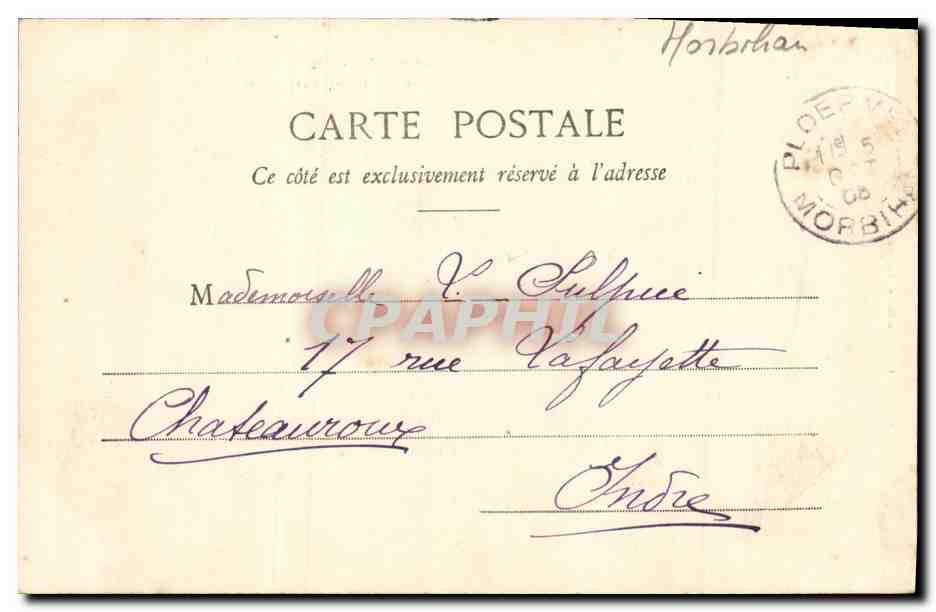 Morbihan
CARTE POSTALE
Ce côté est exclusivement réservé à l'adresse
PLOERM
5
08
MORBIH
Mademoiselle Y. Sulpice
CPAPHIL
17 rue Lafayette
Chateauroux
Indre